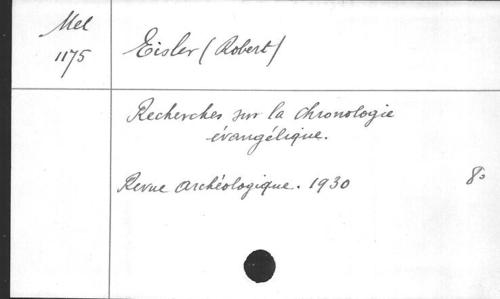 Mel
1175
Eisler (Robert)
Recherches sur la chronologie
évangélique.
Revue archéologique. 1930
8º